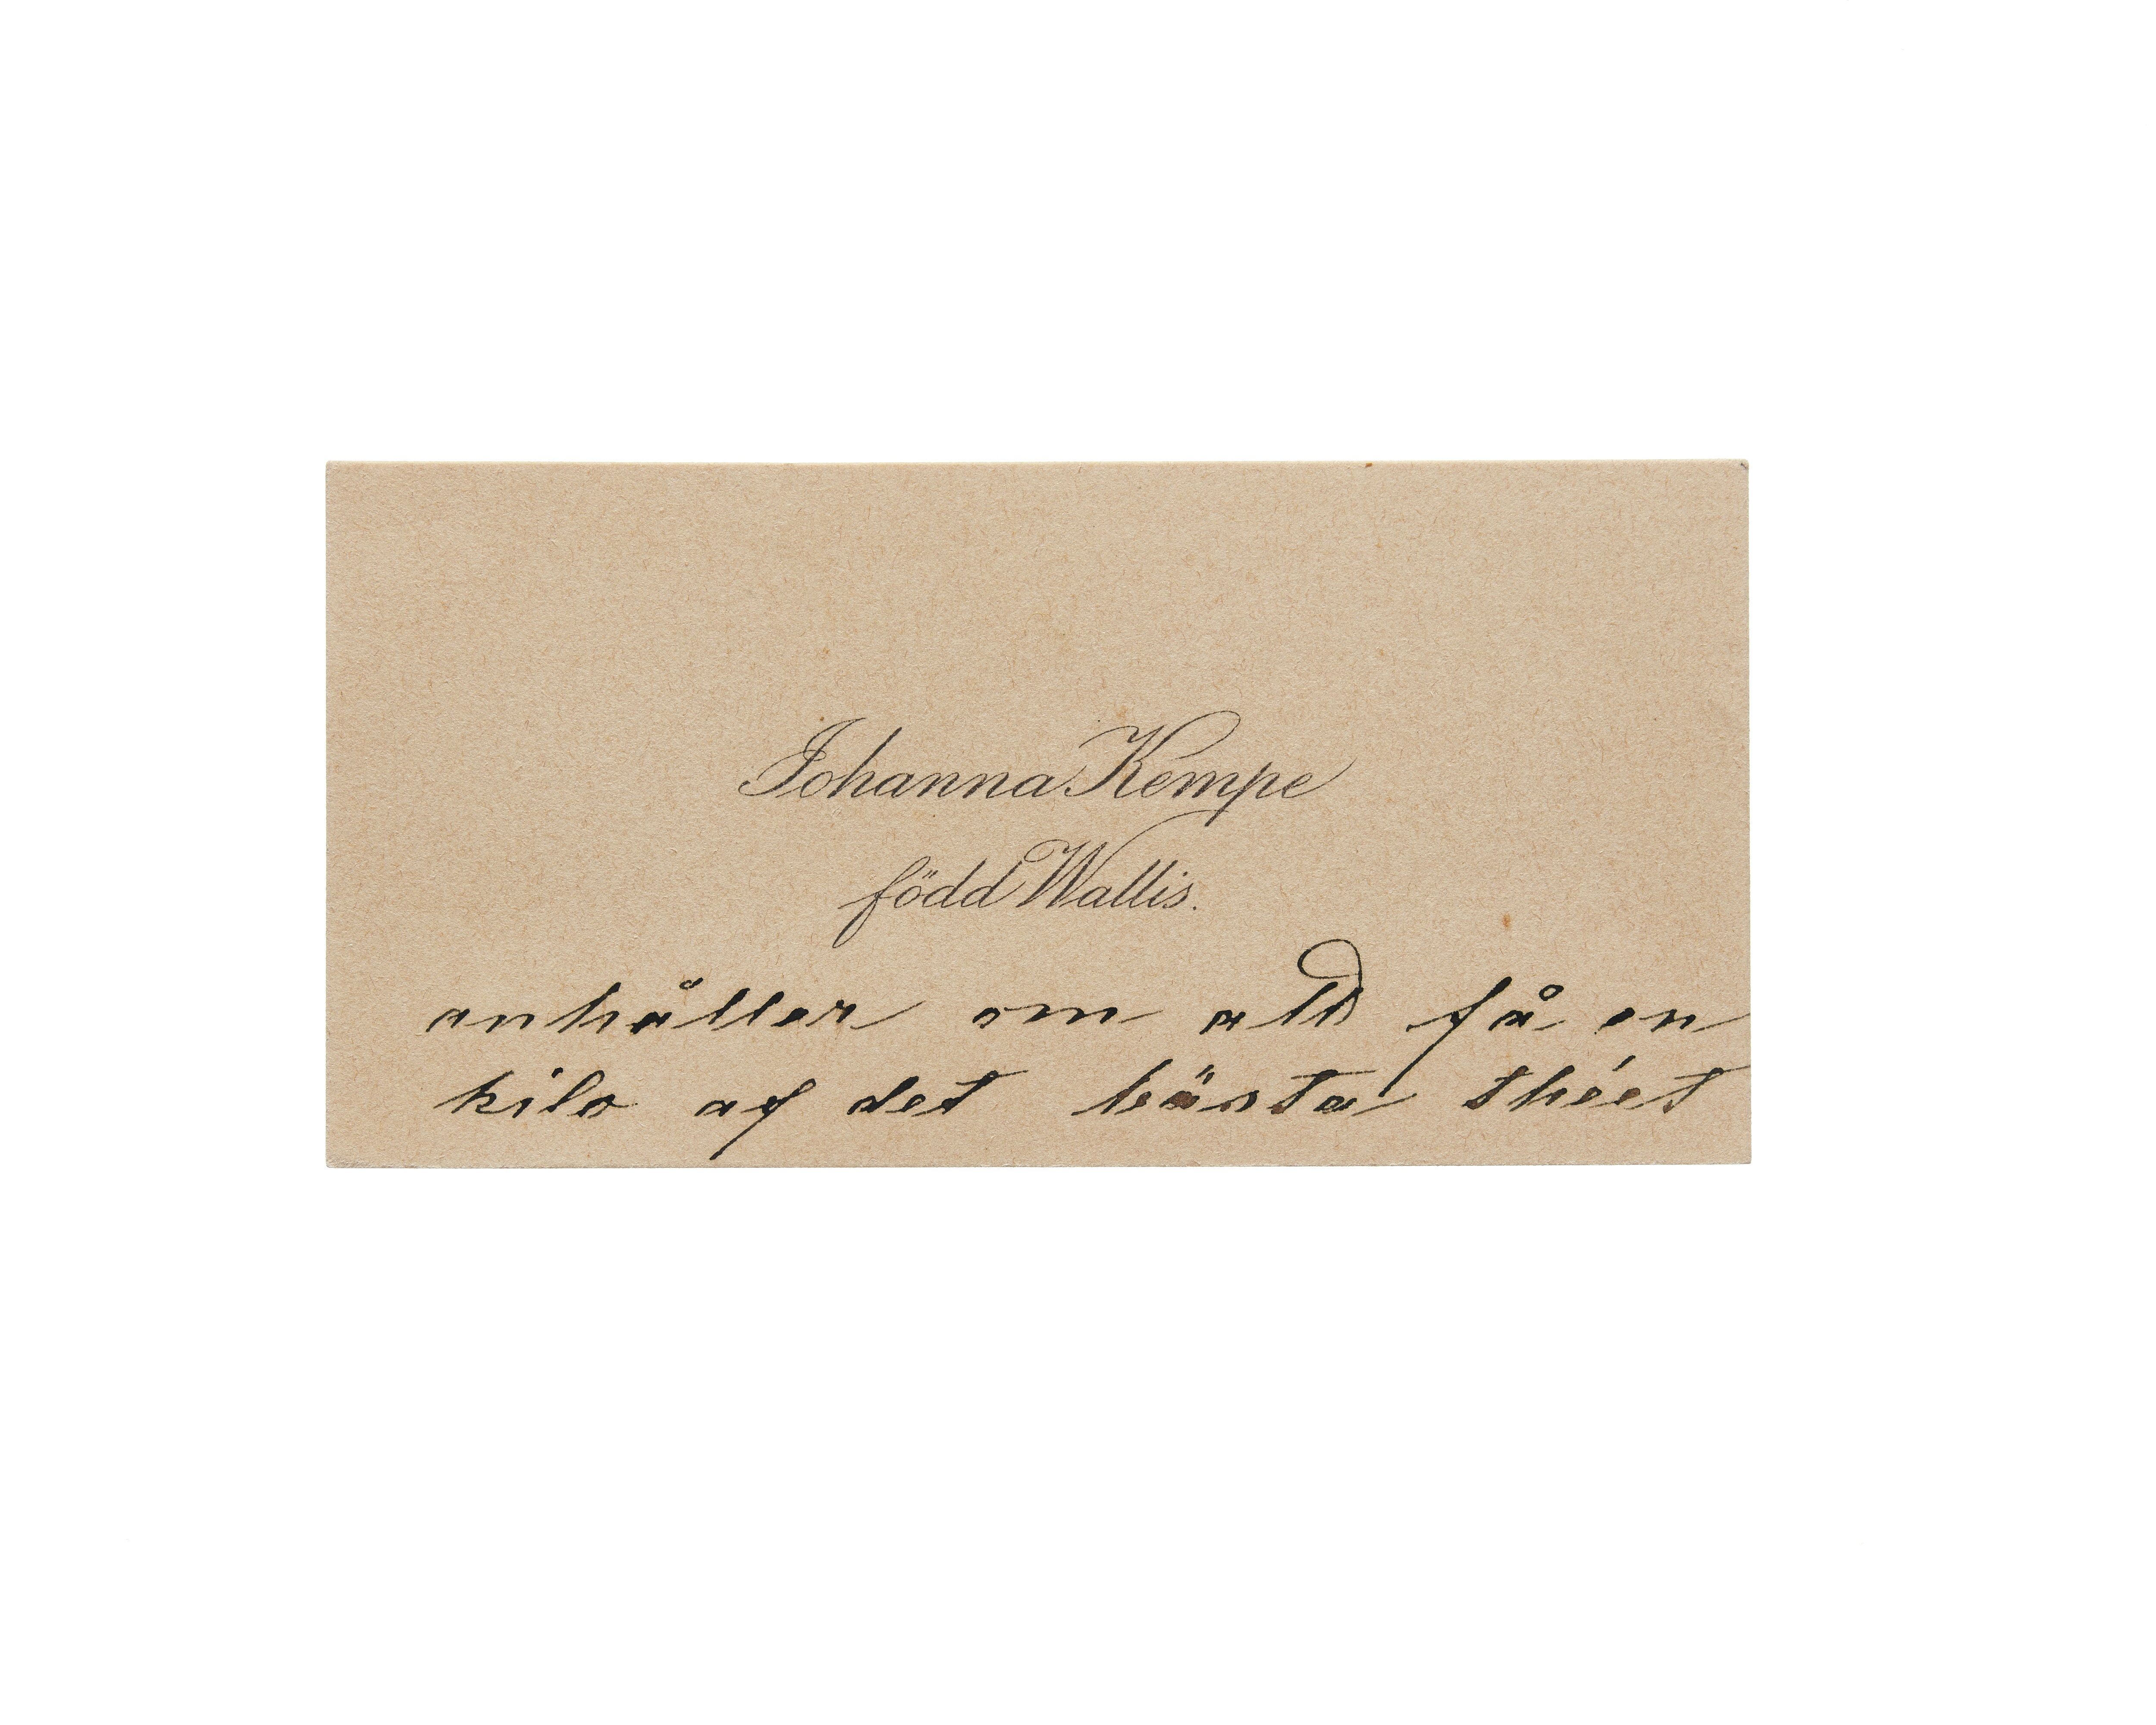 Johanna Kempe
född Wallis.
anhåller om att få en
kilo af det bästa théet